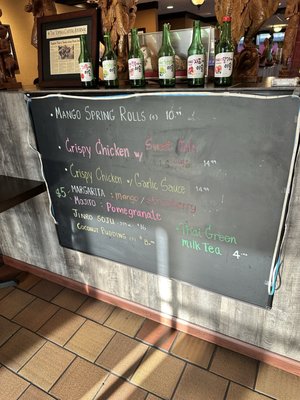 Mango Spring Rolls (2) 10.99
Crispy Chicken w/ Sweet Chili
14.99
Crispy Chicken w/ Garlic Sauce 14.99
$5 MARGARITA: mango/strawberry
MOJITO: Pomegranate
JINRO SOJU
COCONUT PUDDING
Thai Green
Milk Tea